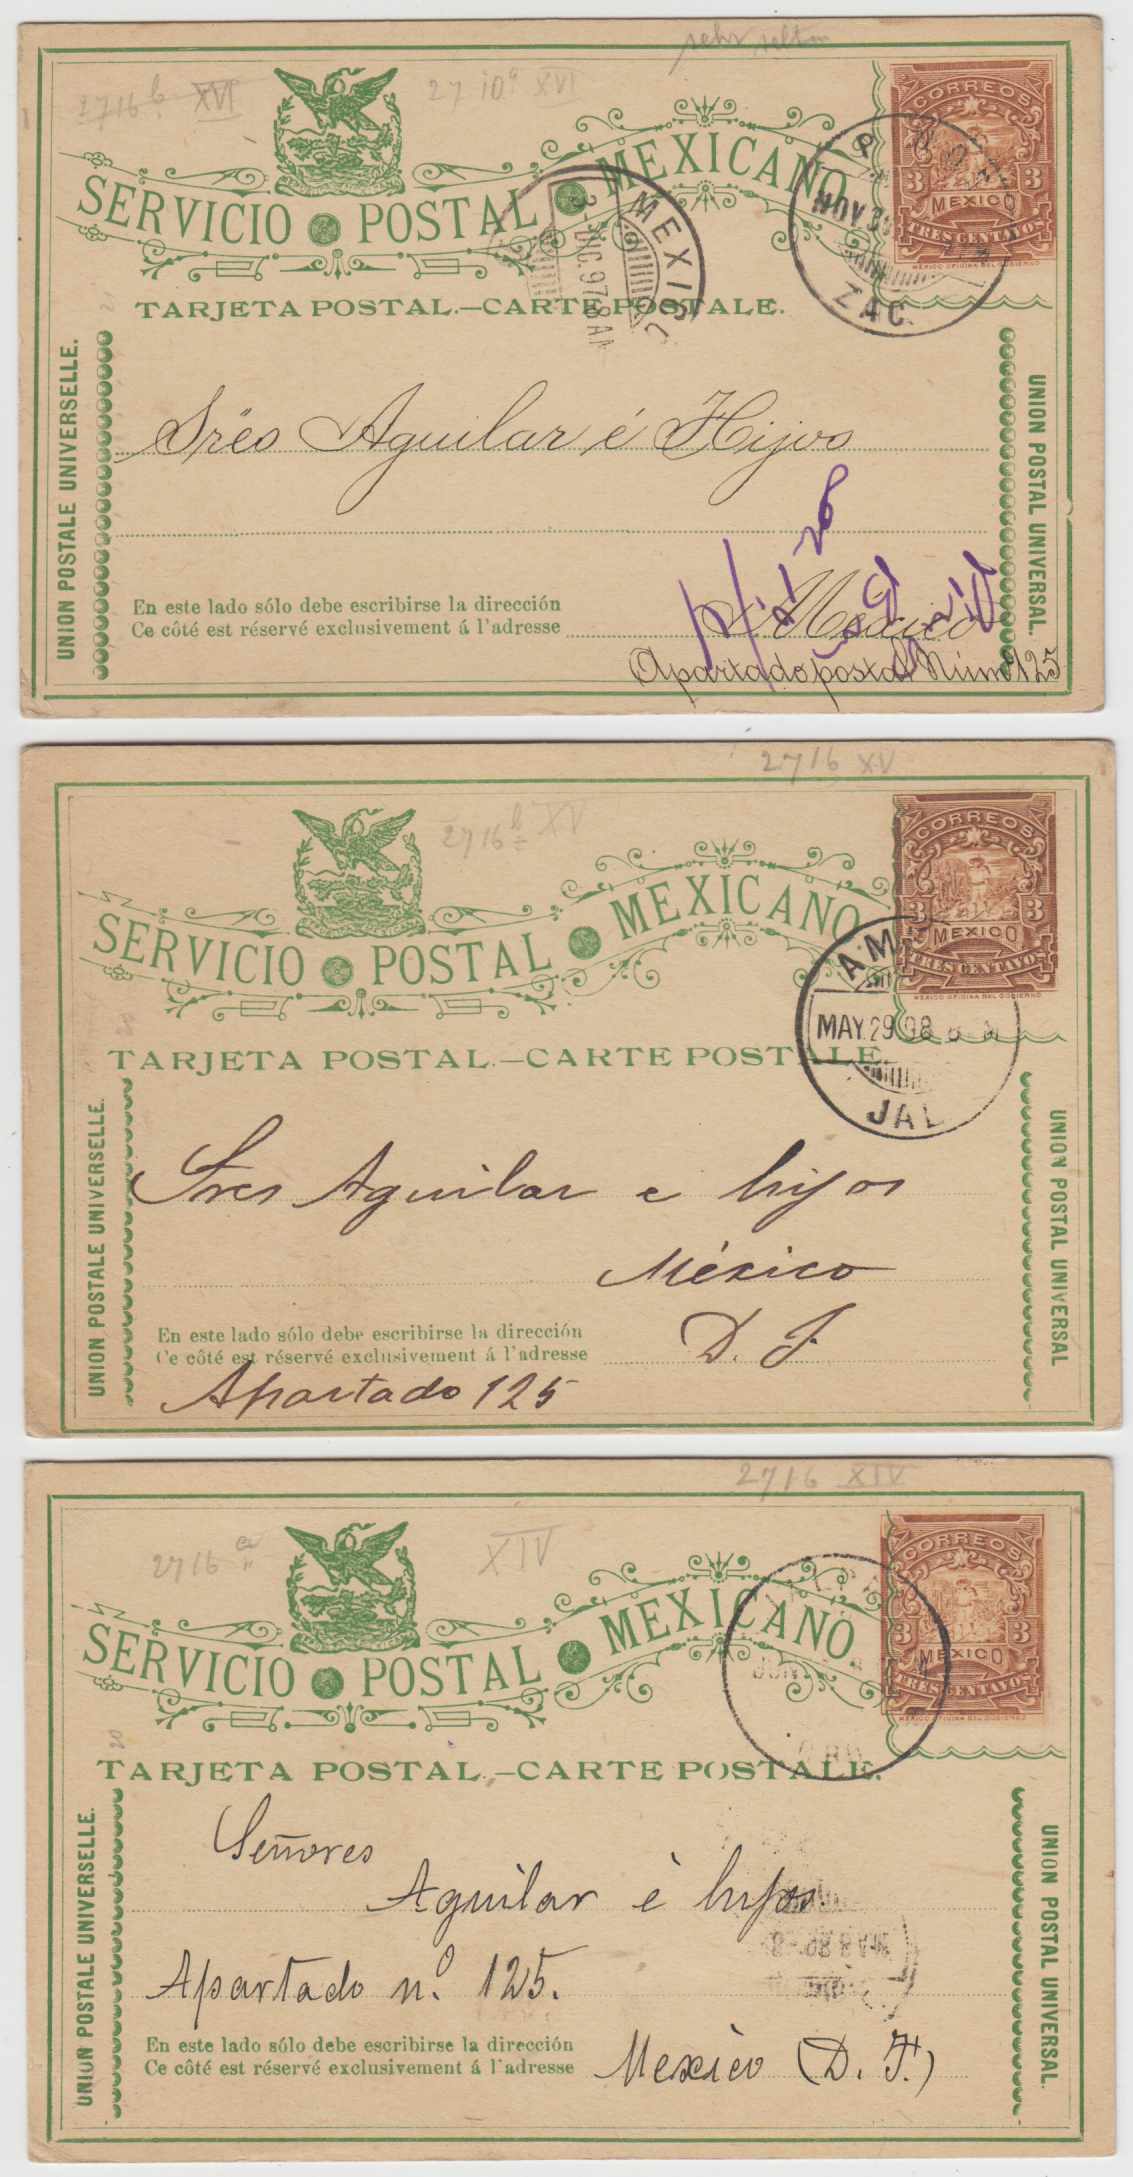 sehr selten
2716 b XVI
27 10a XVI
CORREOS
3 3
MEXICO
TRES CENTAVOS
MEXICO OFICINA DEL GOBIERNO
SERVICIO POSTAL MEXICANO
ZAC.
MEXICO
97 8 AM
TARJETA POSTAL.—CARTE POSTALE.
UNION POSTALE UNIVERSELLE.
UNION POSTAL UNIVERSAL.
Sres Aguilar é Hijos
En este lado sólo debe escribirse la dirección
Ce côté est réservé exclusivement á l'adresse
México
Apartado postal Núm 125
2716 XV
2716 b XV
CORREOS
3 3
MEXICO
TRES CENTAVOS
MEXICO OFICINA DEL GOBIERNO
SERVICIO POSTAL MEXICANO
MAY 29 98
JAL
TARJETA POSTAL.—CARTE POSTALE.
UNION POSTALE UNIVERSELLE.
UNION POSTAL UNIVERSAL
Sres Aguilar e hijos
México
D. F.
En este lado sólo debe escribirse la dirección
Ce côté est réservé exclusivement á l'adresse
Apartado 125
2716 XIV
2716 a
XIV
CORREOS
3 3
MEXICO
TRES CENTAVOS
MEXICO OFICINA DEL GOBIERNO
SERVICIO POSTAL MEXICANO
JUN
TARJETA POSTAL.—CARTE POSTALE.
UNION POSTALE UNIVERSELLE.
UNION POSTAL UNIVERSAL.
Señores
Aguilar è hijos.
Apartado n.º 125.
En este lado sólo debe escribirse la dirección
Ce côté est réservé exclusivement á l'adresse
Mexico (D. F.)